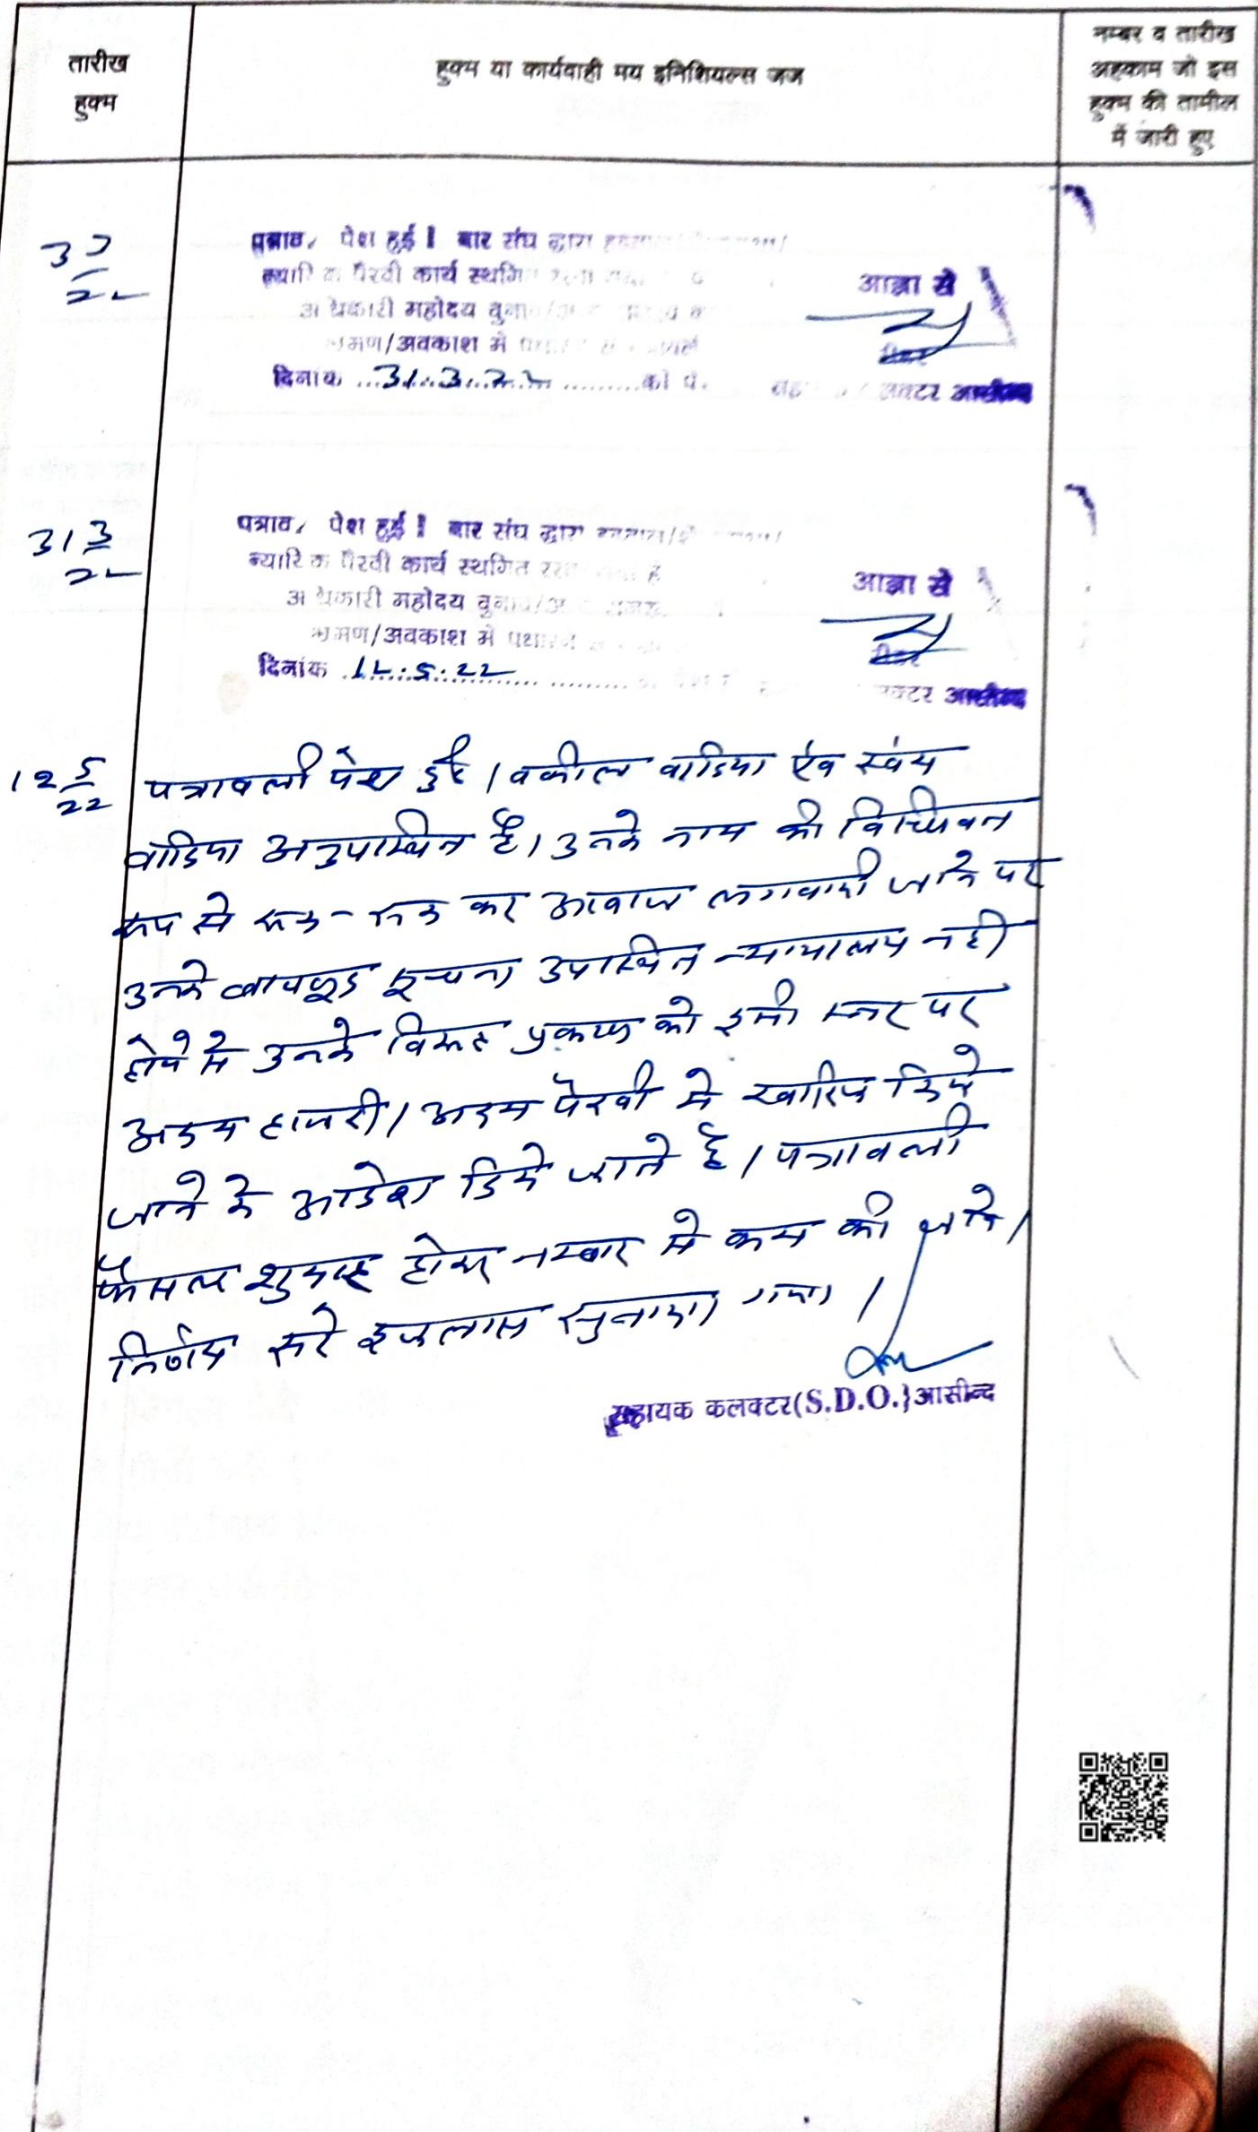 तारीख
हुक्म
हुक्म या कार्यवाही मय इनिशियल्स जज
नम्बर व तारीख
अहकाम जो इस
हुक्म की तामील
में जारी हुए
पेश हुई। बार संघ द्वारा
पैरवी कार्य स्थगित
महोदय चुनाव
/अवकाश में
दिनांक 31.3.22
आज्ञा से
रीडर
आसीन्द
31 3
22
पत्राव. पेश हुई। बार संघ द्वारा
पैरवी कार्य स्थगित
महोदय चुनाव
/अवकाश में
दिनांक 12.5.22
आज्ञा से
रीडर
आसीन्द
12 5
22
पत्रावली पेश हुई। वकील वादिया एंव स्वंय
वादिया अनुपस्थित है। उनके नाम की विधिवत
रूप से रूक-रूक कर आवाज लगवायी जाने पर
उनके बावजूद सूचना उपस्थित न्यायालय नही
होने से उनके विरूद्ध प्रकरण को इसी स्तर पर
अदम हाजरी/अदम पैरवी मे खारिज किये
जाने के आदेश दिये जाते है। पत्रावली
फैसल शुमार होकर नम्बर से कम की जावे।
निर्णय सरे इजलास सुनाया गया।
सहायक कलक्टर(S.D.O.)आसीन्द